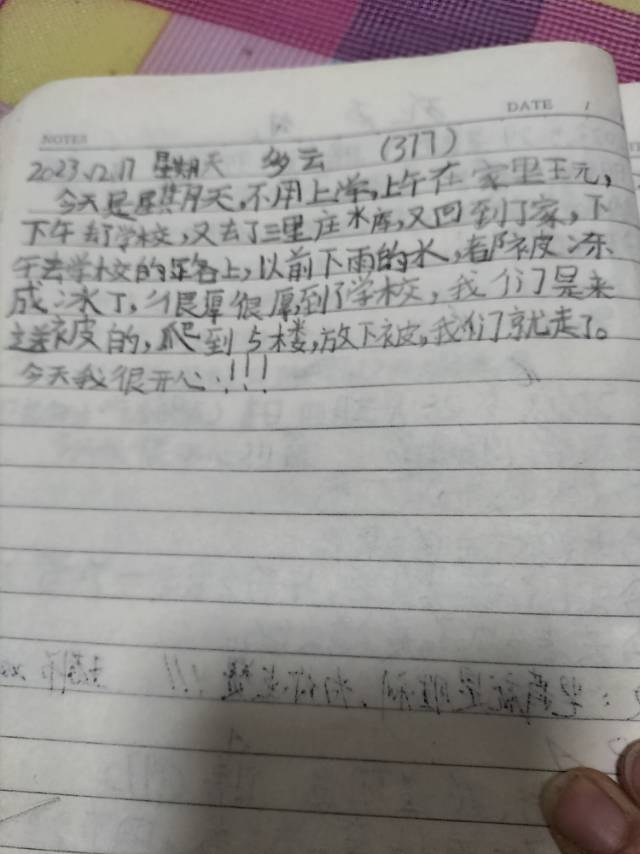 DATE /
NOTES
2023.12.17 星期天 多云 (317)
今天是星期天,不用上学,上午在家里王元,
下午去了学校,又去了三里庄水库,又回到了家,下
午去学校的路上,以前下雨的水,都被冻
成冰了,很厚很厚,到了学校,我们是来
送被的,爬到5楼,放下被,我们就走了。
今天我很开心!!!